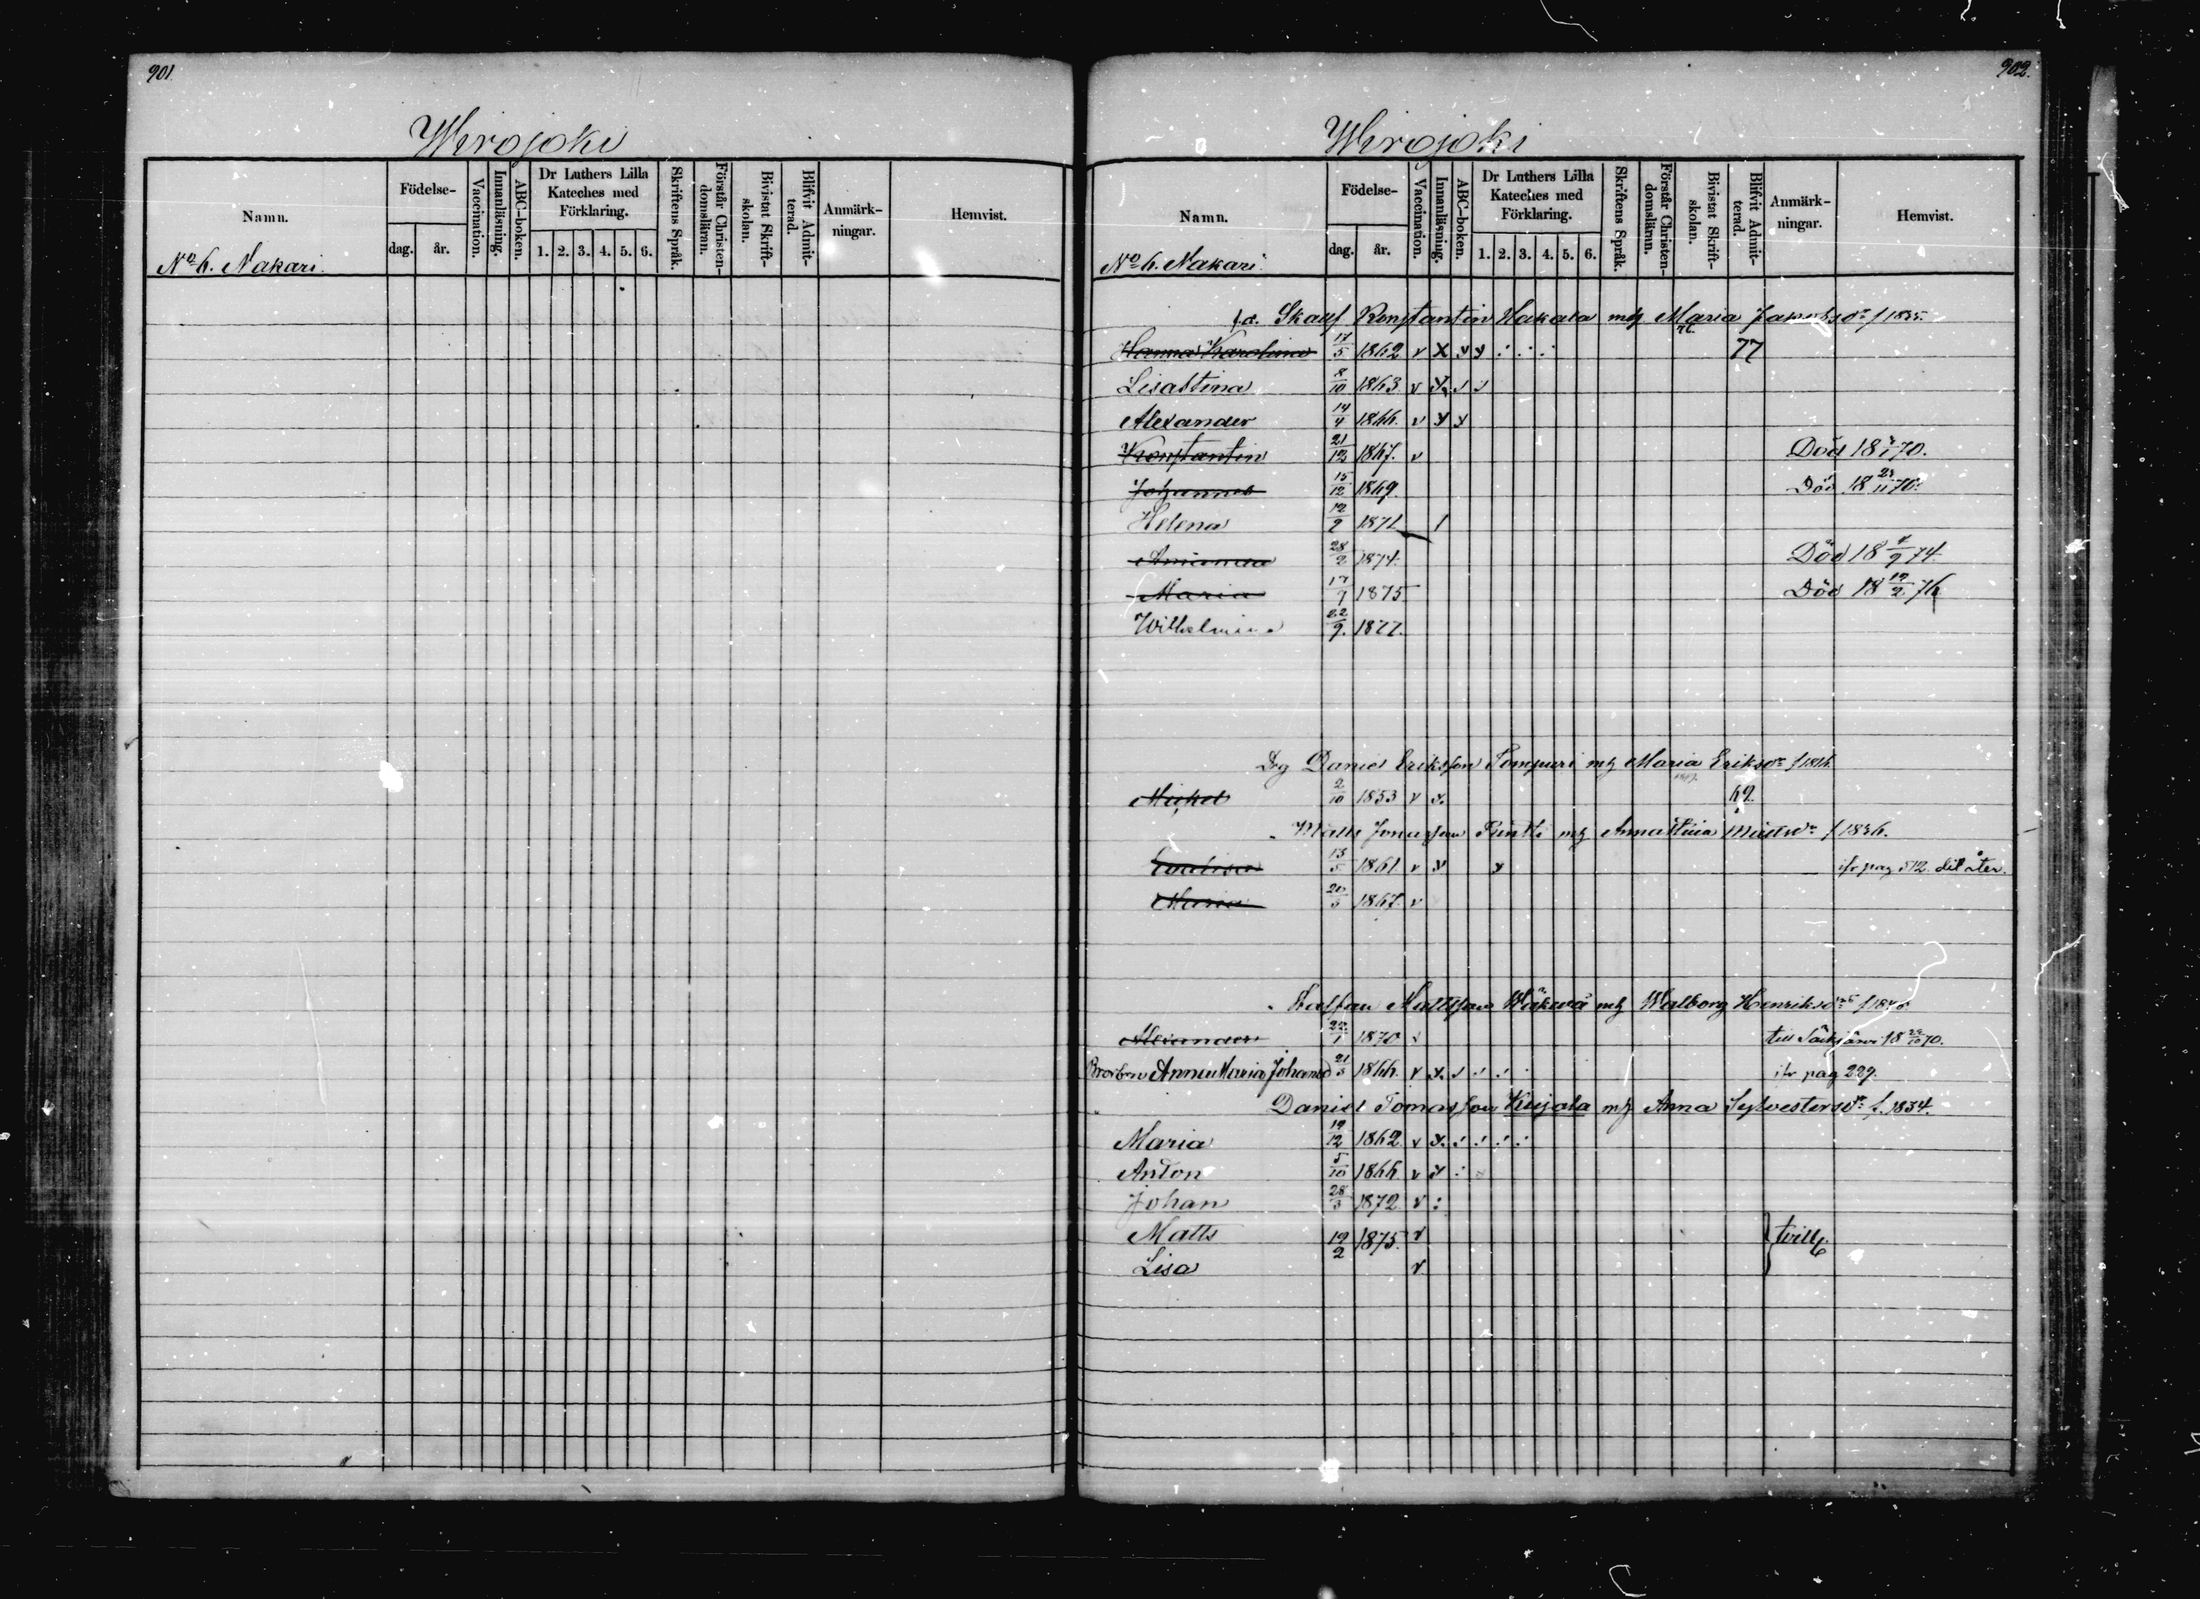 901.
Wirojoki
Namn.
No 6. Nakari.
Födelse-
dag. år.
Vaccination.
Innanläsning.
ABC-boken.
Dr Luthers Lilla
Kateches med
Förklaring.
1. 2. 3. 4. 5. 6.
Skriftens Språk.
Förstår Christen-
domsläran.
Bivistat Skrift-
skolan.
Blifvit Admit-
terad.
Anmärk-
ningar.
Hemvist.
902.
Wirojoki
Namn.
No 6. Nakari.
Födelse-
dag. år.
Vaccination.
Innanläsning.
ABC-boken.
Dr Luthers Lilla
Kateches med
Förklaring.
1. 2. 3. 4. 5. 6.
Skriftens Språk.
Förstår Christen-
domsläran.
Bivistat Skrift-
skolan.
Blifvit Admit-
terad.
Anmärk-
ningar.
Hemvist.
Konstantin Hakala m/ Maria f 1835.
Hanna Karolina 17/5 1862 v x 77
Lisastina 8/10 1863 v
Alexander 14/4 1866. v
Konstantin 21/12 1867. v Död 18 70.
Johannes 15/12 1869 Död 18 23/11 70.
Helena 12/9 1871
28/2 1874. Död 18 74.
Maria 1875 Död 18 19/2 76
Wilhelmina 22/9. 1877.
Drg Daniel Eriksson Tompuri m/ Maria Eriksdr
Michel 2/10 1853 v x. 69.
Matts m/ Annastina f 1836.
13/5 1861 v ifr pag 512. dit åter.
Maria 1867. v
Mattsson m/ Walborg Henriksdr
Alexander 22/1 1870 till Säkjärvi 18 70.
Brorbn Anna Maria Johansd 21/3 1866. v ifr pag 229.
Daniel Tomasson Kujala m/ Anna Sylvestersdr f. 1834.
Maria 19/12 1862. v
Anton 5/10 1866 v
Johan 28/3 1872 v
Matts 19/2 1875. v } tvill.
Lisa v